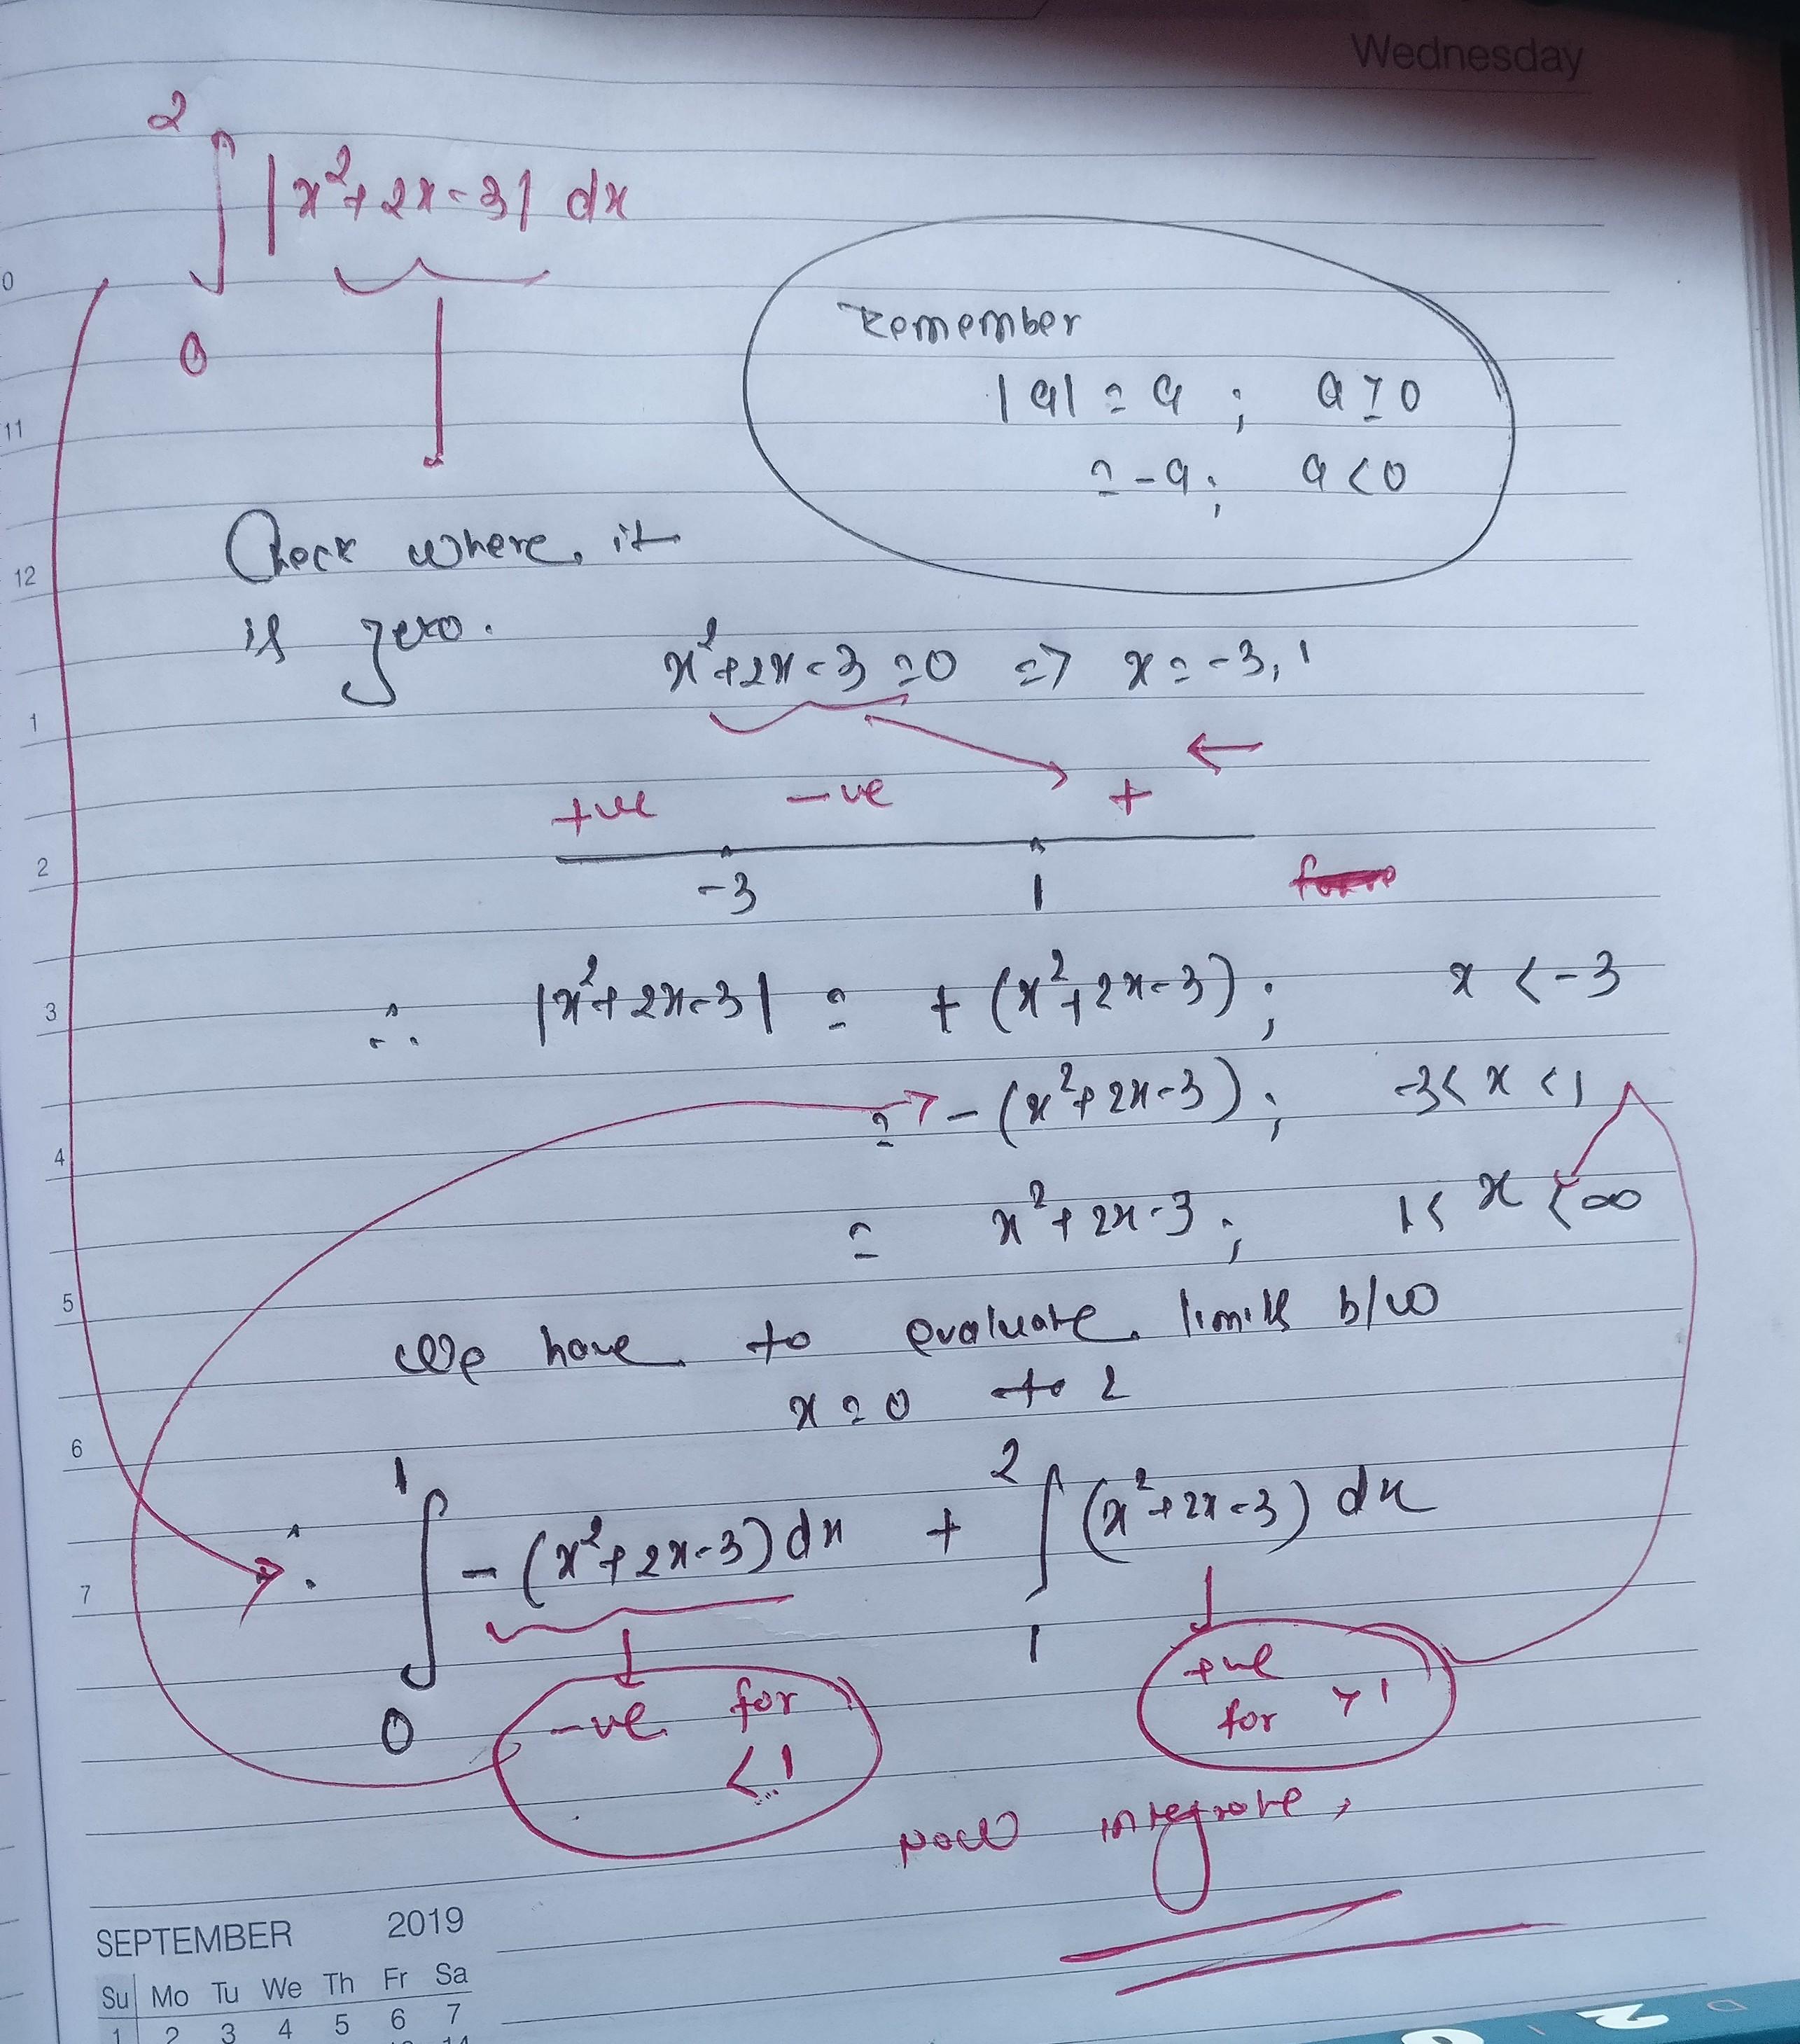 Wednesday
2
∫ |x²+2x-3| dx
0
Remember
|a| = a ; a ≥ 0
= -a ; a < 0
Check where it
is zero.
x²+2x-3 = 0 => x = -3, 1
+ve -ve + ←
-3 1
∴ |x²+2x-3| = + (x²+2x-3) ; x < -3
= - (x²+2x-3) ; -3 < x < 1
= x²+2x-3 ; 1 < x < ∞
We have to evaluate limits b/w
x = 0 to 2
1 2
∴ ∫ - (x²+2x-3) dx + ∫ (x²+2x-3) dx
0 1
-ve for
< 1
+ve
for > 1
Now integrate,
0
11
12
1
2
3
4
5
6
7
SEPTEMBER 2019
Su Mo Tu We Th Fr Sa
1 2 3 4 5 6 7
14